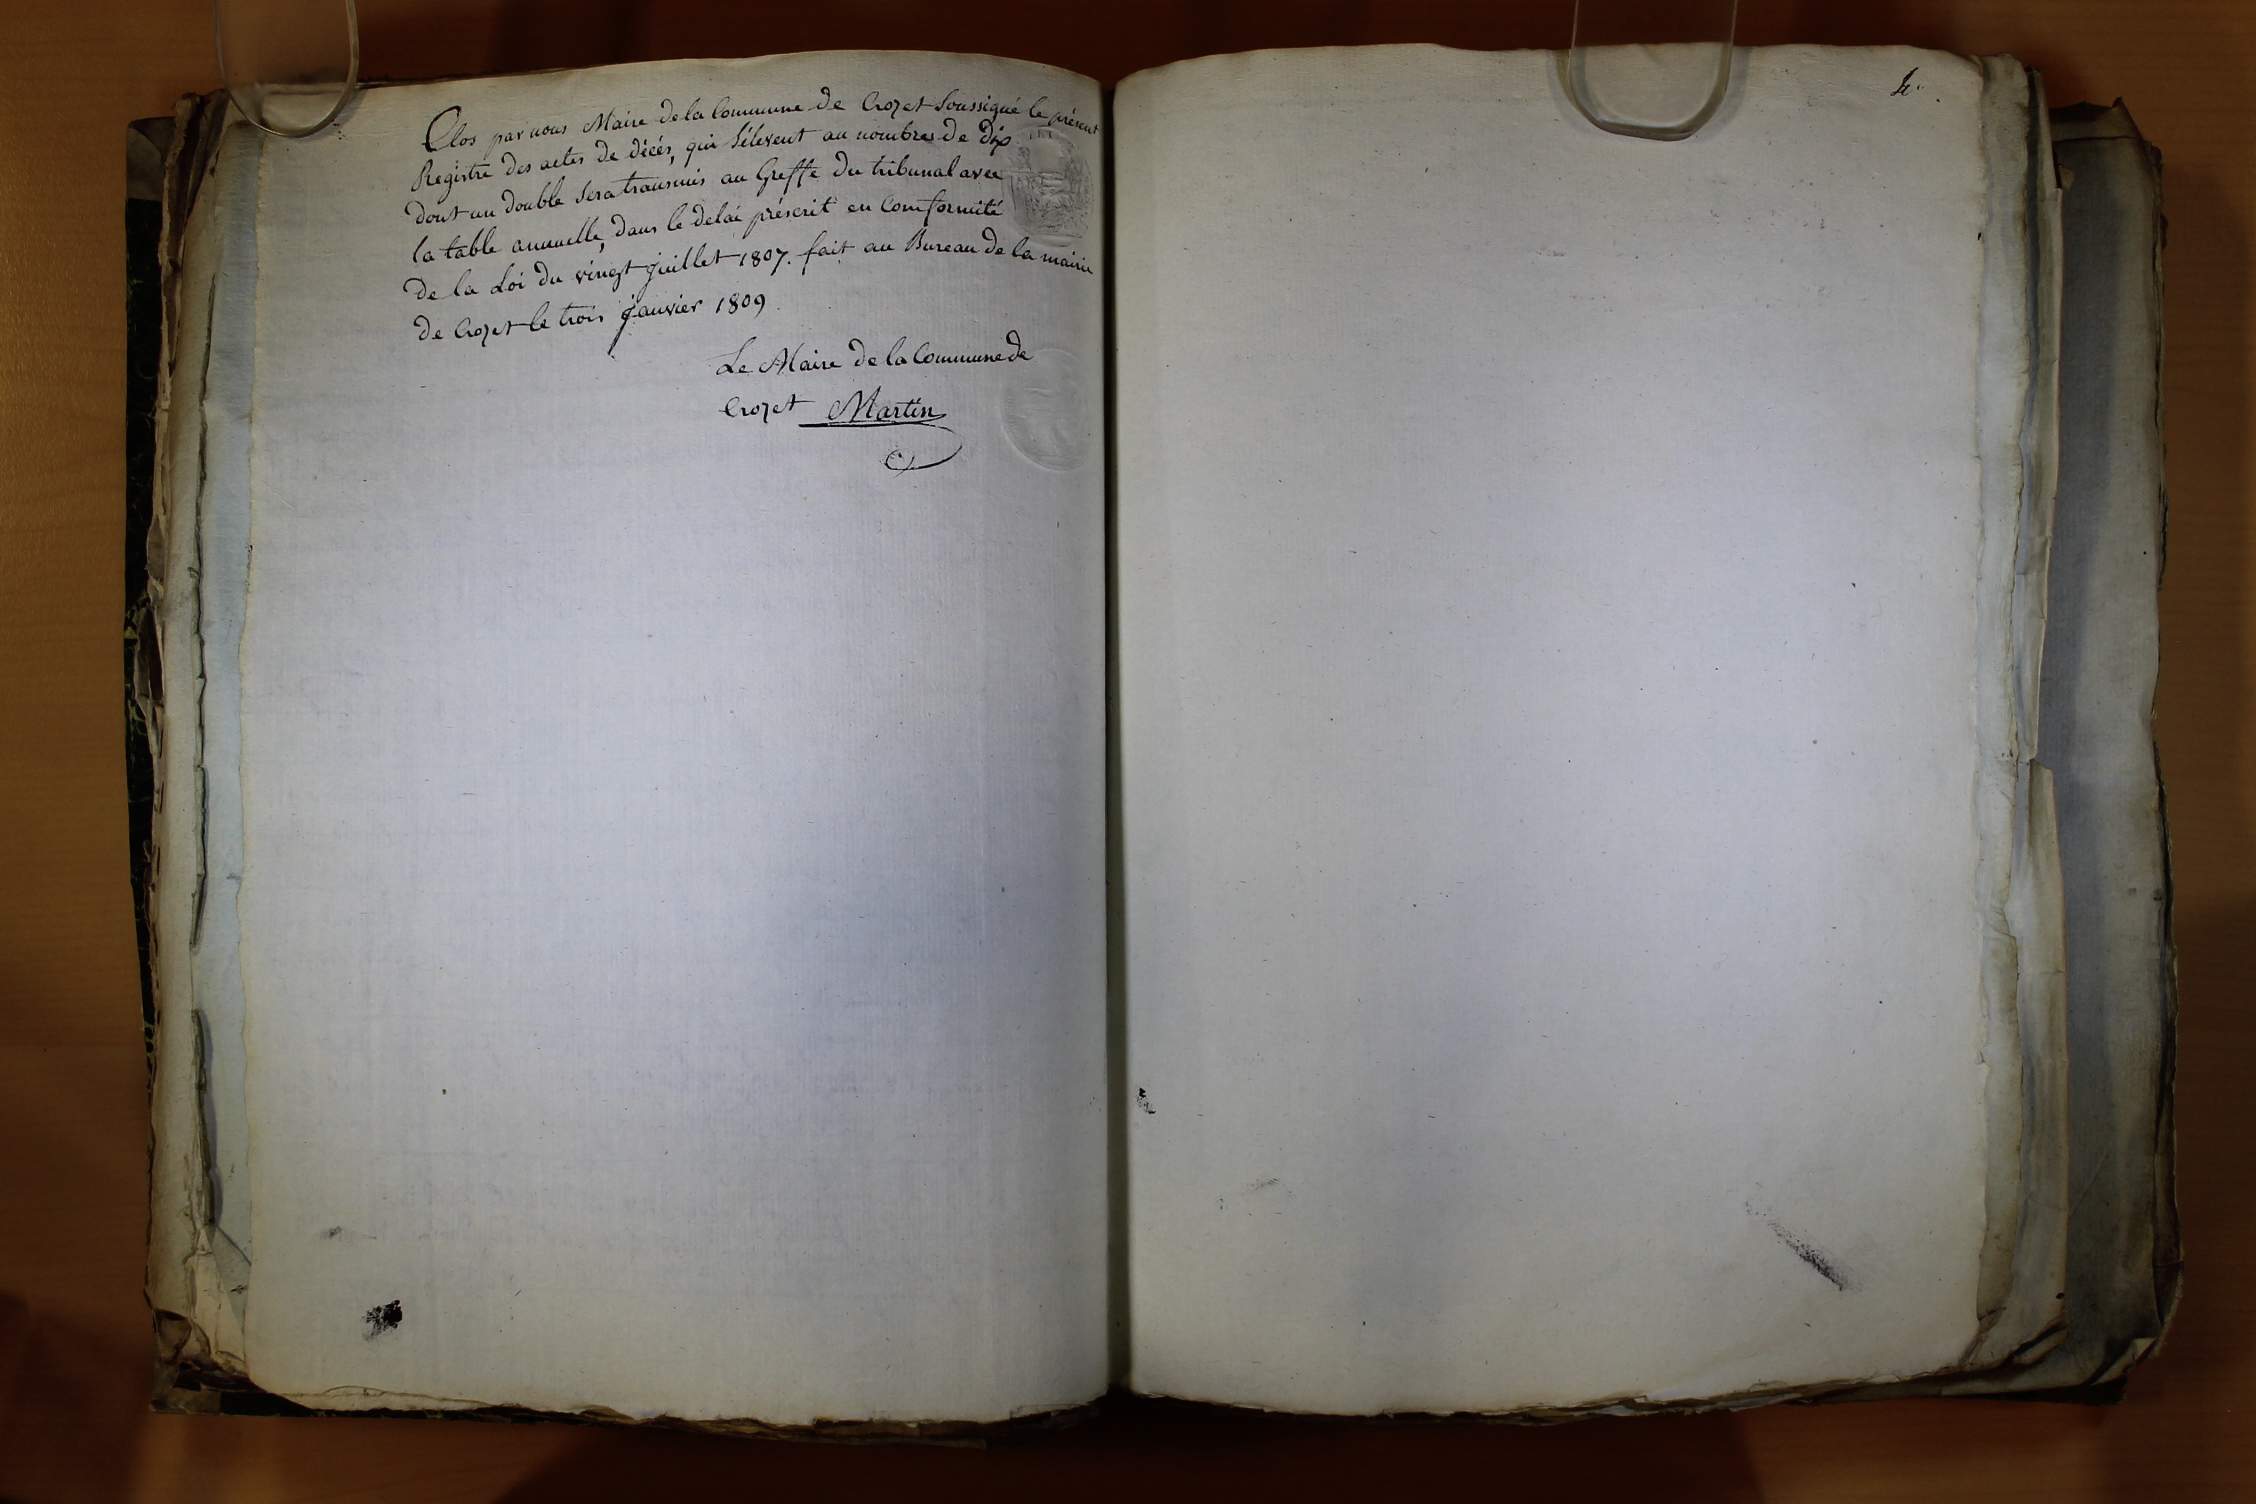 Clos par nous Maire de la Commune de Crozet Soussigné le présent
Registre des actes de décés, qui S'élevent au nombres de dix
dont un double sera transmis au Greffe du tribunal avec
la table annuelle, dans le delai préscrit en Comformité
de la Loi du vingt juillet 1807. fait au Bureau de la mairie
de Crozet le trois janvier 1809.
Le Maire de la Commune de
Crozet Martin
4.